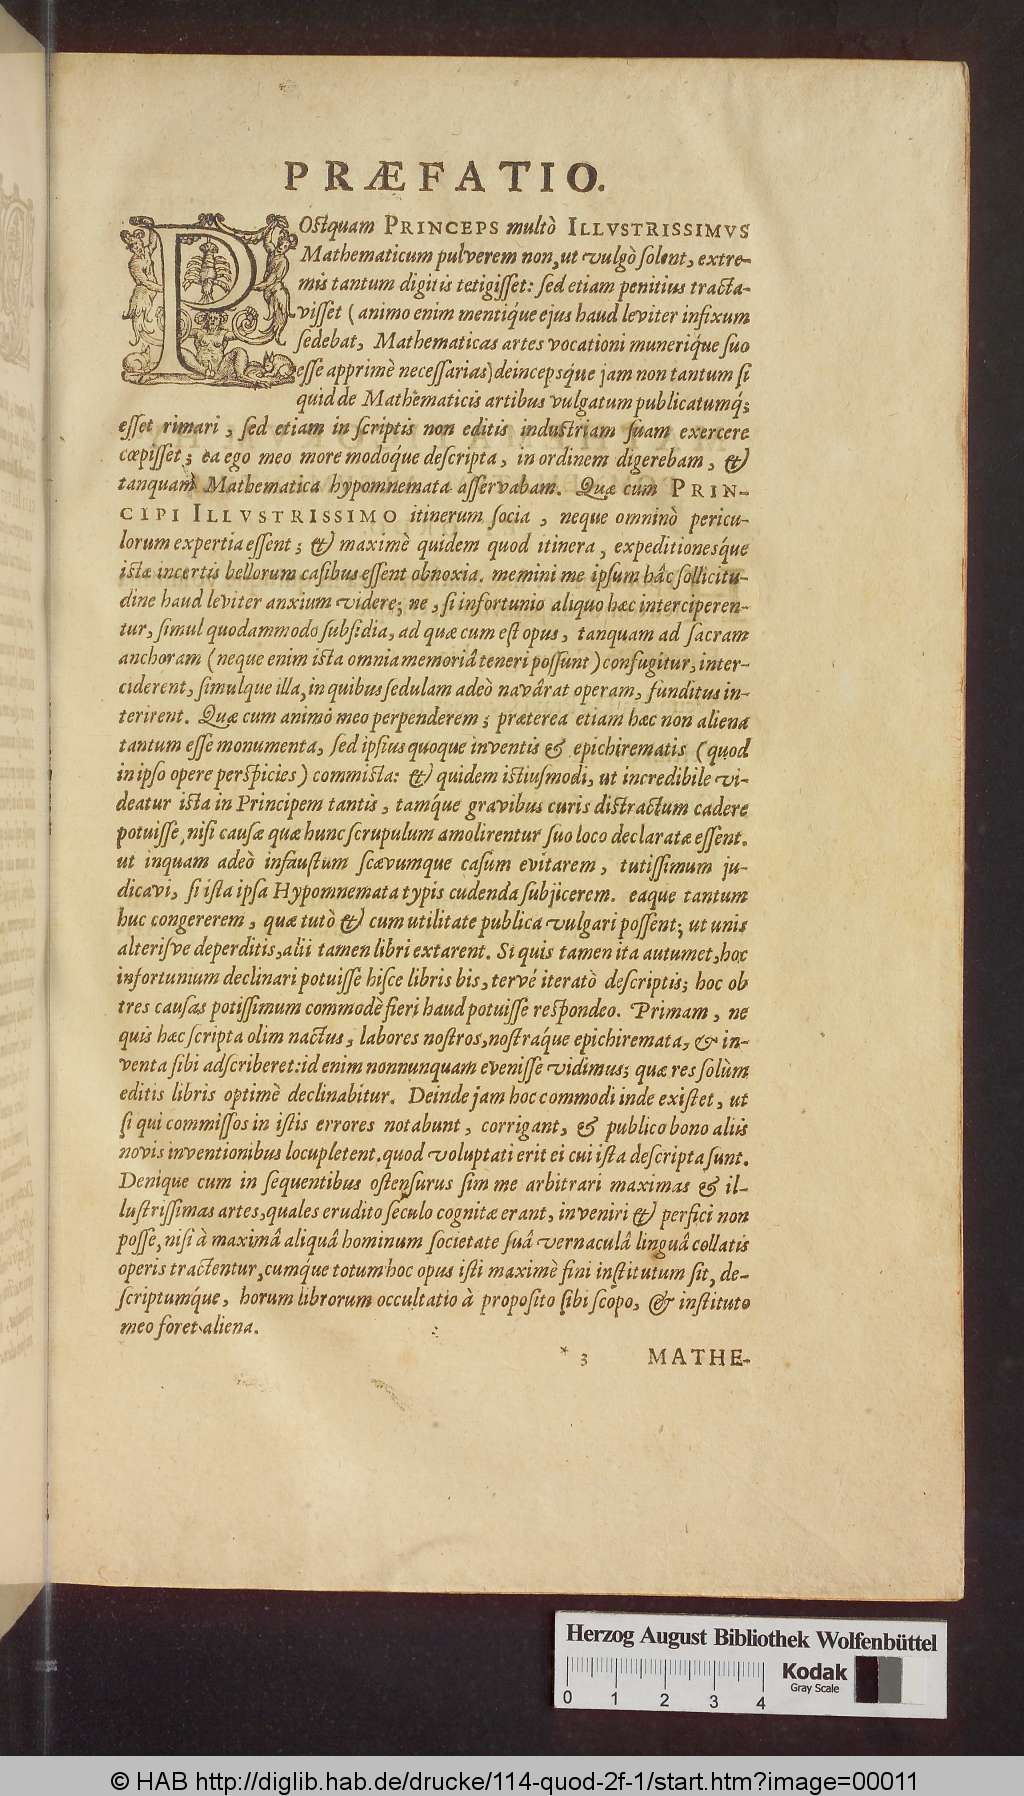 PRÆFATIO.
POstquam PRINCEPS multò ILLVSTRISSIMVS
Mathematicum pulverem non, ut vulgò solent, extre-
mis tantum digitis tetigisset: sed etiam penitius tracta-
visset (animo enim mentiq́ue ejus haud leviter infixum
sedebat, Mathematicas artes vocationi muneriq́ue suo
esse apprimè necessarias) deincepsq́ue jam non tantum si
quid de Mathematicis artibus vulgatum publicatumq́;
esset rimari, sed etiam in scriptis non editis industriam suam exercere
cœpisset; ea ego meo more modoq́ue descripta, in ordinem digerebam, &
tanquam Mathematica hypomnemata asservabam. Quæ cum PRIN-
CIPI ILLVSTRISSIMO itinerum socia, neque omninò pericu-
lorum expertia essent; & maximè quidem quod itinera, expeditionesq́ue
istæ incertis bellorum casibus essent obnoxia. memini me ipsum hâc sollicitu-
dine haud leviter anxium videre; ne, si infortunio aliquo hæc interciperen-
tur, simul quodammodo subsidia, ad quæ cum est opus, tanquam ad sacram
anchoram (neque enim ista omnia memoriâ teneri possunt) confugitur, inter-
ciderent, simulque illa, in quibus sedulam adeò navârat operam, funditus in-
terirent. Quæ cum animo meo perpenderem; præterea etiam hæc non aliena
tantum esse monumenta, sed ipsius quoque inventis & epichirematis (quod
in ipso opere perspicies) commista: & quidem istiusmodi, ut incredibile vi-
deatur ista in Principem tantis, tamq́ue gravibus curis distractum cadere
potuisse, nisi causæ quæ hunc scrupulum amolirentur suo loco declaratæ essent.
ut inquam adeò infaustum scævumque casum evitarem, tutissimum ju-
dicavi, si ista ipsa Hypomnemata typis cudenda subjicerem. eaque tantum
huc congererem, quæ tutò & cum utilitate publica vulgari possent; ut unis
alterisve deperditis, alii tamen libri extarent. Si quis tamen ita autumet, hoc
infortunium declinari potuisse hisce libris bis, tervé iteratò descriptis; hoc ob
tres causas potissimum commodè fieri haud potuisse respondeo. Primam, ne
quis hæc scripta olim nactus, labores nostros, nostraq́ue epichiremata, & in-
venta sibi adscriberet: id enim nonnunquam evenisse vidimus; quæ res solùm
editis libris optimè declinabitur. Deinde jam hoc commodi inde existet, ut
si qui commissos in istis errores notabunt, corrigant, & publico bono aliis
novis inventionibus locupletent. quod voluptati erit ei cui ista descripta sunt.
Denique cum in sequentibus ostensurus sim me arbitrari maximas & il-
lustrissimas artes, quales erudito seculo cognitæ erant, inveniri & perfici non
posse, nisi à maximâ aliquâ hominum societate suâ vernaculâ linguâ collatis
operis tractentur, cumque totum hoc opus isti maximè fini institutum sit, de-
scriptumq́ue, horum librorum occultatio à proposito sibi scopo, & instituto
meo foret aliena.
* 3 MATHE-
Herzog August Bibliothek Wolfenbüttel
0 1 2 3 4
Kodak
Gray Scale
© HAB http://diglib.hab.de/drucke/114-quod-2f-1/start.htm?image=00011